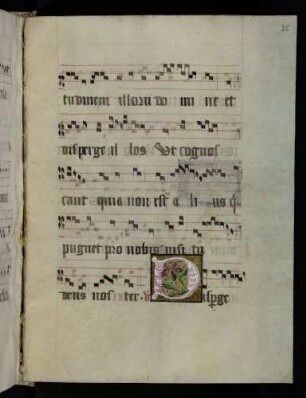 25
tudinem illoru do mi ne et
disperge il los Ut cognos
cant quia non est a li us q
pugnet pro nobis nisi tu
deus noster. D isp̱ge